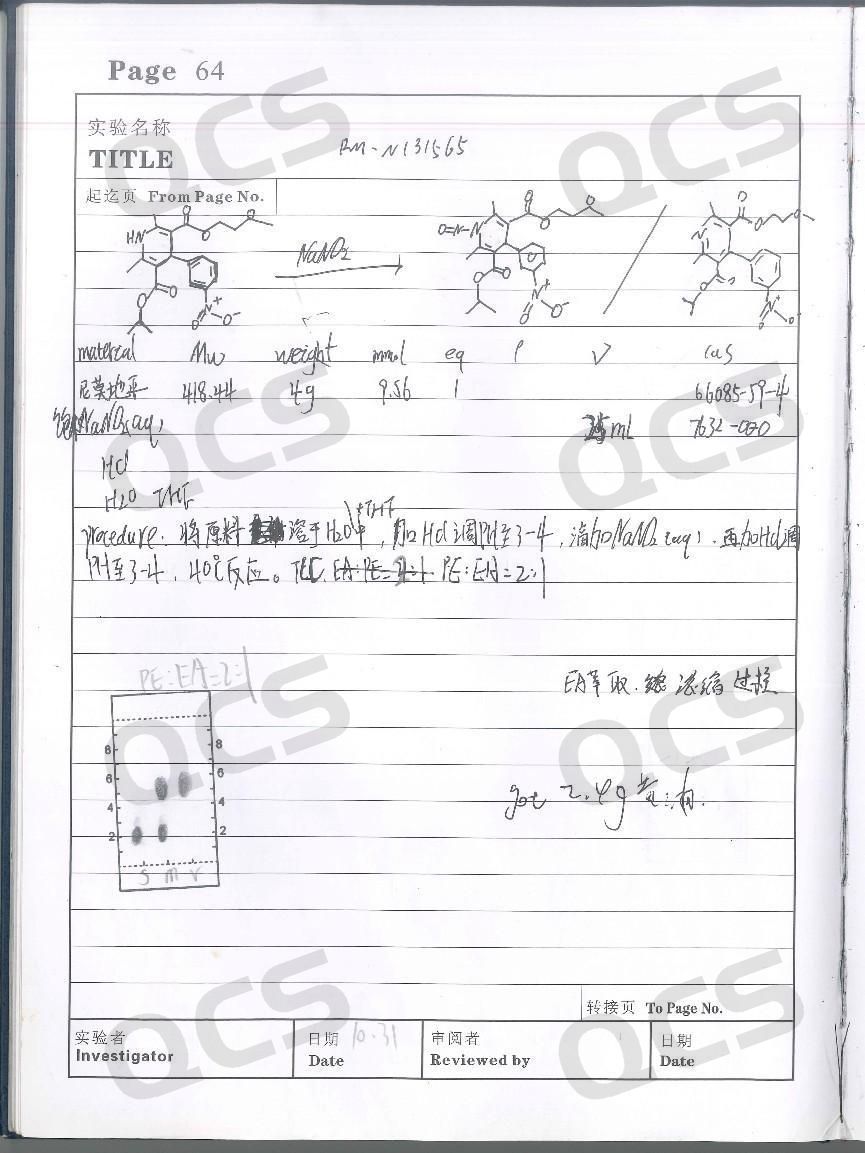 Page 64
实验名称
TITLE
RM-N131565
起迄页 From Page No.
NaNO2
material Mw weight mmol eq ρ V cas
尼莫地平 418.44 4g 9.56 1 66085-59-4
饱和NaNO2(aq) mL 7632-00-0
HCl
H2O THF
+THF
procedure. 将原料 溶于H2O中, 加HCl调PH至3-4, 滴加NaNO2(aq). 再加HCl调
PH至3-4, 40℃反应。TLC. PE:EA=2:1
PE:EA=2:1
EA萃取. 浓缩 过柱
8 8
6 6
4 4
2 2
S M r
get 2.4g 黄油.
转接页 To Page No.
实验者
Investigator
日期 10.31
Date
审阅者
Reviewed by
日期
Date
QCS
QCS
QCS
QCS
QCS
QCS
QCS
QCS